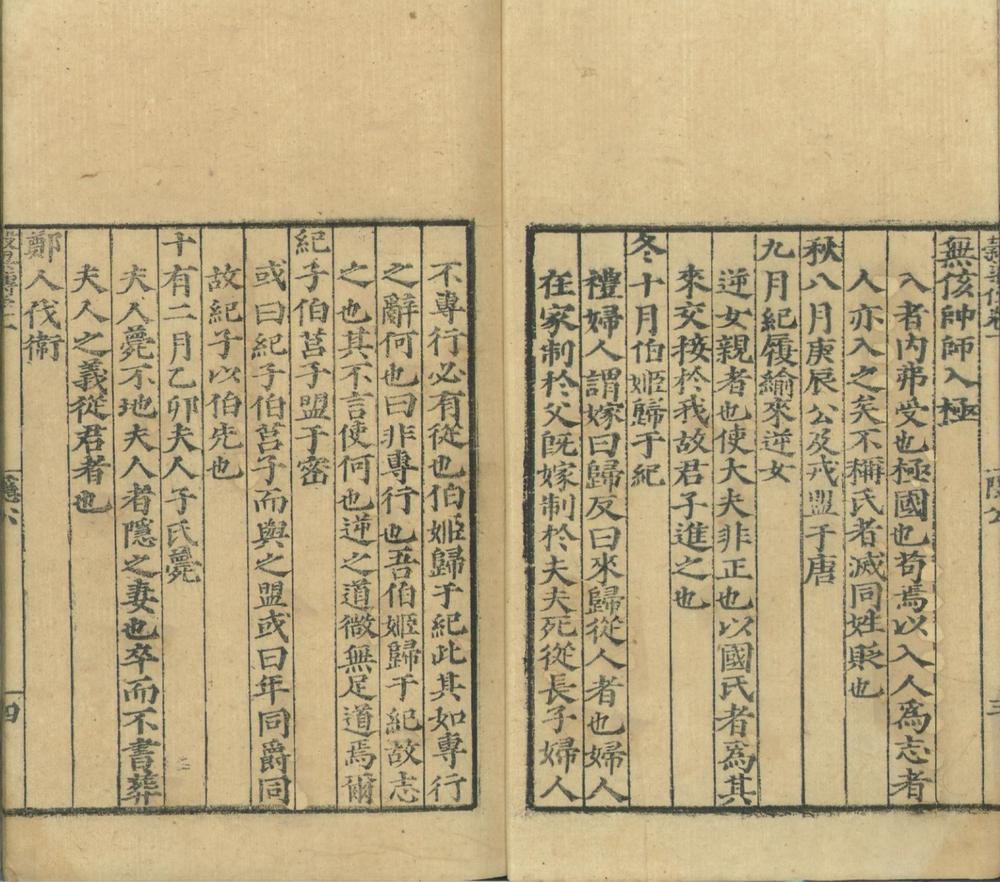 無侅帥師入極
入者内弗受也極國也苟焉以入人為志者
人亦入之矣不稱氏者滅同姓貶也
秋八月庚辰公及戎盟于唐
九月紀履緰來逆女
逆女親者也使大夫非正也以國氏者為其
來交接於我故君子進之也
冬十月伯姬歸于紀
禮婦人謂嫁曰歸反曰來歸從人者也婦人
在家制於父既嫁制於夫夫死從長子婦人
不專行必有從也伯姬歸于紀此其如專行
之辭何也曰非專行也吾伯姬歸于紀故志
之也其不言使何也逆之道微無足道焉爾
紀子伯莒子盟于密
或曰紀子伯莒子而與之盟或曰年同爵同
故紀子以伯先也
十有二月乙卯夫人子氏薨
夫人薨不地夫人者隱之妻也卒而不書葬
夫人之義從君者也
鄭人伐衛
四